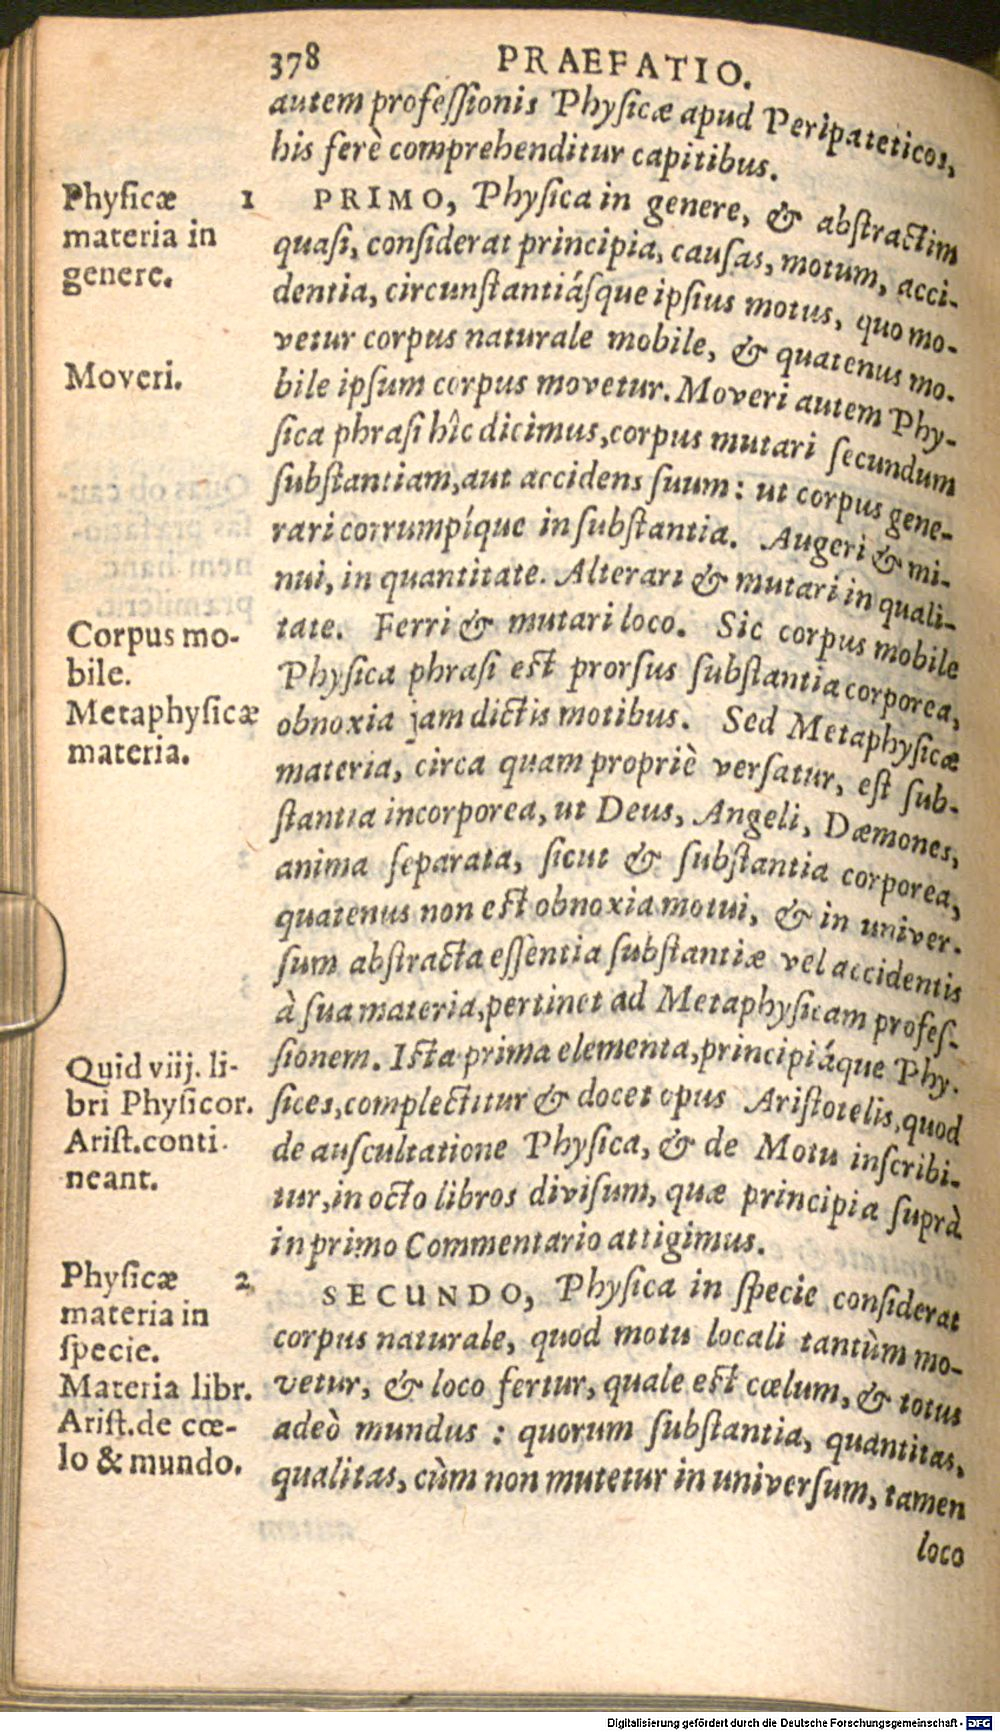 378 PRAEFATIO.
autem professionis Physicæ apud Peripateticos,
his ferè comprehenditur capitibus.
Physicæ
materia in
genere.
1 PRIMO, Physica in genere, & abstractim
quasi, considerat principia, causas, motum, acci-
dentia, circunstantiásque ipsius motus, quo mo-
vetur corpus naturale mobile, & quatenus mo-
Moveri.
bile ipsum corpus movetur. Moveri autem Phy-
sica phrasi hîc dicimus, corpus mutari secundum
substantiam, aut accidens suum: ut corpus gene-
rari corrumpíque in substantia. Augeri & mi-
nui, in quantitate. Alterari & mutari in quali-
tate. Ferri & mutari loco. Sic corpus mobile
Corpus mo-
bile.
Physica phrasi est prorsus substantia corporea,
obnoxia jam dictis motibus. Sed Metaphysicæ
Metaphysicæ
materia.
materia, circa quam propriè versatur, est sub-
stantia incorporea, ut Deus, Angeli, Dæmones,
anima separata, sicut & substantia corporea,
quatenus non est obnoxia motui, & in univer-
sum abstracta essentia substantiæ vel accidentis
à sua materia, pertinet ad Metaphysicam profes-
sionem. Ista prima elementa, principiáque Phy-
Quid viij. li-
bri Physicor.
Arist. conti
neant.
sices, complectitur & docet opus Aristotelis, quod
de auscultatione Physica, & de Motu inscribi-
tur, in octo libros divisum, quæ principia suprà
in primo Commentario attigimus.
Physicæ
materia in
specie.
2 SECUNDO, Physica in specie considerat
corpus naturale, quod motu locali tantùm mo-
Materia libr.
Arist. de cœ-
lo & mundo.
vetur, & loco fertur, quale est cœlum, & totus
adeò mundus: quorum substantia, quantitas,
qualitas, cùm non mutetur in universum, tamen
loco
Digitalisierung gefördert durch die Deutsche Forschungsgemeinschaft - DFG